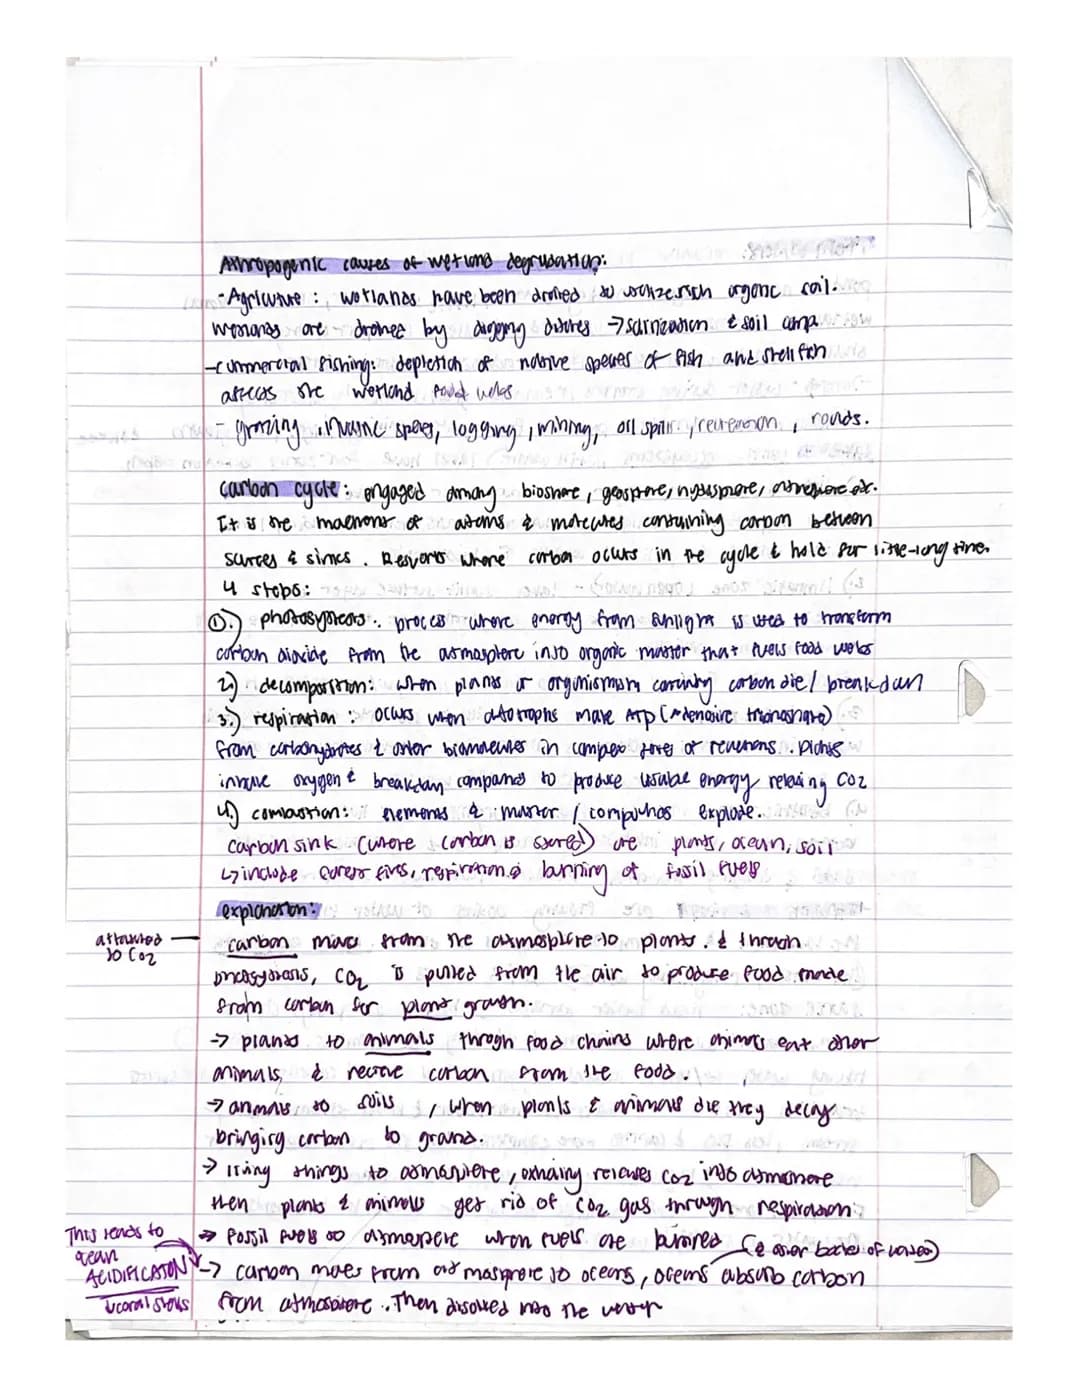 Anthropogenic causes of wetland degradation:
- Agriculture : wetlands have been drained to utilize rich organic soil.
wetlands are drained by digging ditches → salinization & soil
- commercial fishing: depletion of native species of fish and shellfish
affects the wetland food webs
- grazing, invasive species, logging, mining, oil spills, recreation, roads.
carbon cycle: engaged among biosphere, geosphere, hydrosphere, atmosphere etc.
It is the of atoms & molecules containing carbon between
sources & sinks. where carbon occurs in the cycle & hold for little-long time.
4 steps:
1.) photosynthesis: process where energy from sunlight is used to transform
carbon dioxide from the atmosphere into organic matter that fuels food webs
2.) decomposition: when plants or carrying carbon die/ breakdown
3.) respiration: occurs when autotrophs make ATP
from carbohydrates & other biomolecules in complex of reactions. plants
inhale oxygen & breakdown compounds to produce usable energy releasing CO2
4.) combustion: elements & matter / compounds explode.
carbon sink (where carbon is stored) are plants, ocean, soil
↳ include forest fires, respiration & burning of fossil fuels
explanation:
attached to CO2
carbon moves from the atmosphere to plants. & through
photosynthesis, CO2 is pulled from the air to produce food made
from carbon for plant growth.
→ plants to animals through food chains where animals eat other
animals, & receive carbon from the food.
→ animals to soils, when plants & animals die they decay
bringing carbon to ground.
→ living things to atmosphere, exhaling releases CO2 into atmosphere
then plants & animals get rid of CO2 gas through respiration
→ fossil fuels to atmosphere when fuels are burned
(& other bodies of water)
This leads to
ocean
ACIDIFICATION
↳ coral
→ carbon moves from atmosphere to oceans, oceans absorb carbon
from atmosphere. Then dissolved into the water